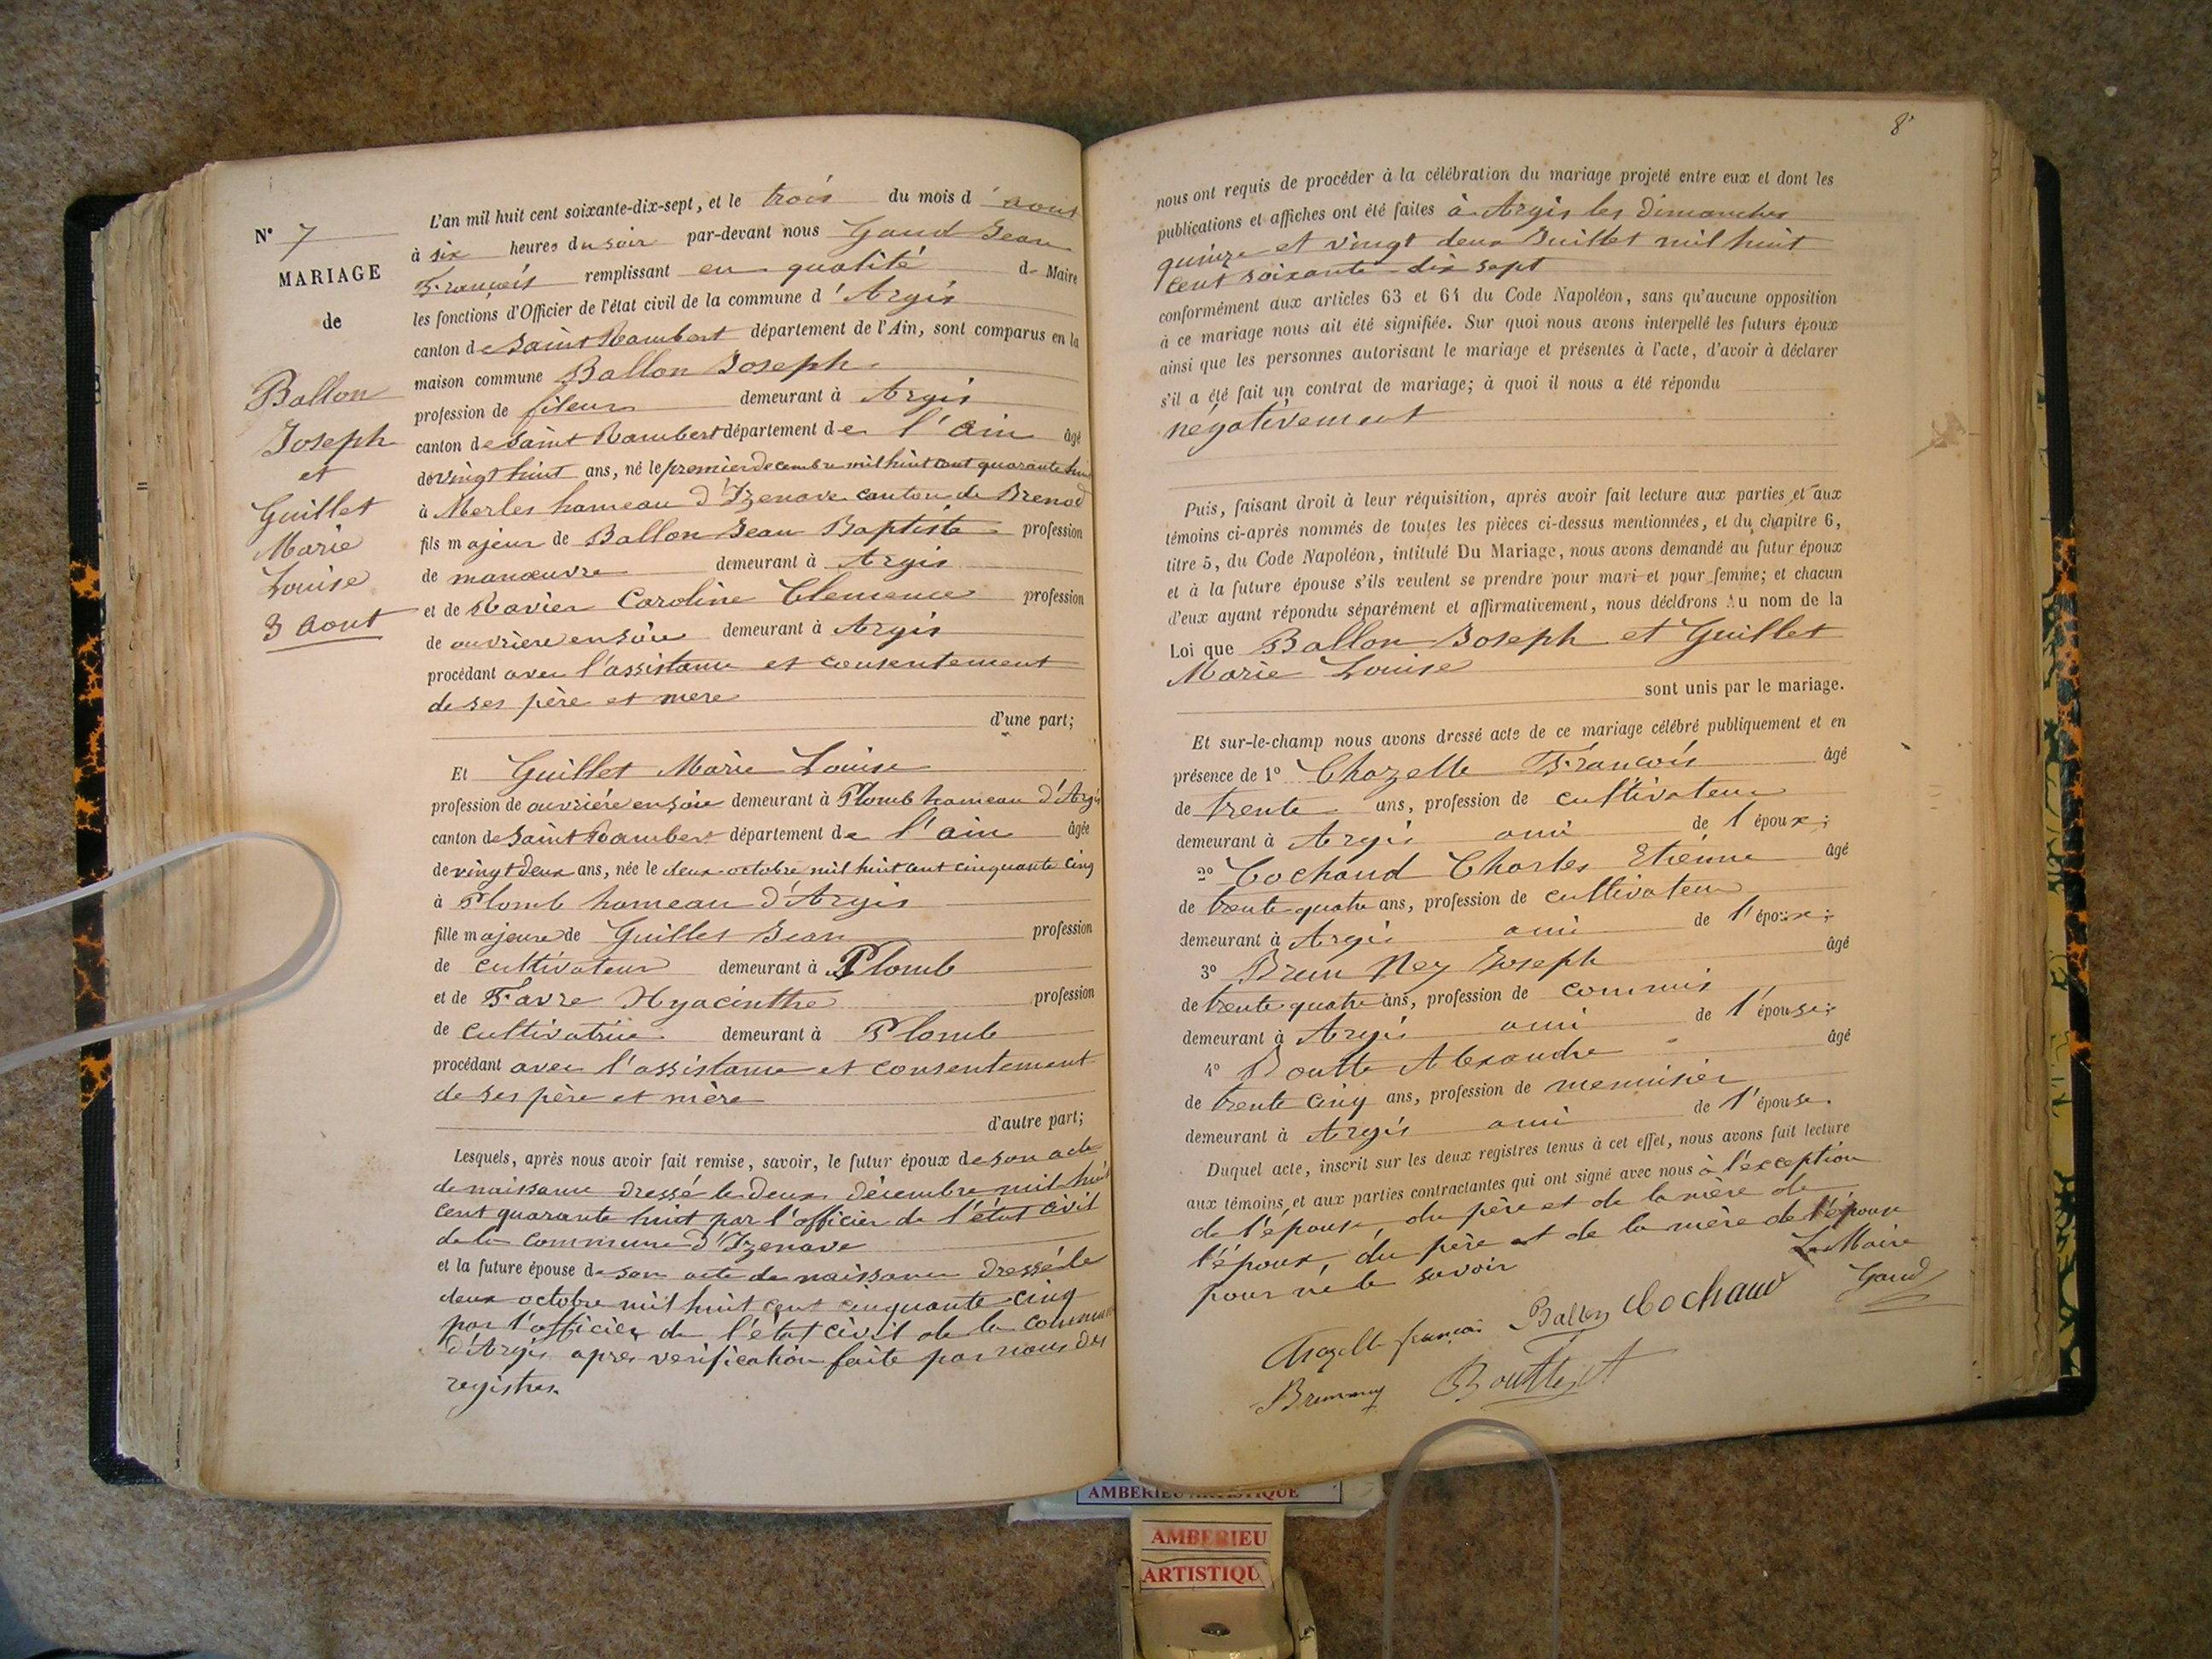 N° 7
MARIAGE
de
Ballon
Joseph
et
Guillet
Marie
Louise
3 Aout
L'an mil huit cent soixante-dix-sept, et le trois du mois d'aout
à six heures du soir par-devant nous Gaud Jean
François remplissant en qualité de Maire
les fonctions d'Officier de l'état civil de la commune d'Argis
canton de Saint Rambert département de l'Ain, sont comparus en la
maison commune Ballon Joseph
profession de fileur demeurant à Argis
canton de Saint Rambert département de l'ain âgé
de vingt huit ans, né le premier decembre mil huit cent quarante huit
à Merles hameau d'Izenave canton de Brenod
fils majeur de Ballon Jean Baptiste profession
de manœuvre demeurant à Argis
et de Ravier Caroline Clemence profession
de ouvrière en soie demeurant à Argis
procédant avec l'assistance et consentement
de ses père et mere
d'une part;
Et Guillet Marie Louise
profession de ouvrière en soie demeurant à Plomb hameau d'Argis
canton de Saint Rambert département de l'ain âgée
de vingt deux ans, née le deux octobre mil huit cent cinquante cinq
à Plomb hameau d'Argis
fille majeure de Guillet Jean profession
de cultivateur demeurant à Plomb
et de Favre Hyacinthe profession
de cultivatrice demeurant à Plomb
procédant avec l'assistance et consentement
de ses père et mère
d'autre part;
Lesquels, après nous avoir fait remise, savoir, le futur époux de son acte
de naissance dressé le deux décembre mil huit
cent quarante huit par l'officier de l'état civil
de la commune d'Izenave
et la future épouse de son acte de naissance dressé le
deux octobre mil huit cent cinquante cinq
par l'officier de l'état civil de la commune
d'Argis apres verification faite par nous des
registres
8
nous ont requis de procéder à la célébration du mariage projeté entre eux et dont les
publications et affiches ont été faites à Argis les dimanches
quinze et vingt deux Juillet mil huit
cent soixante dix sept
conformément aux articles 63 et 64 du Code Napoléon, sans qu'aucune opposition
à ce mariage nous ait été signifiée. Sur quoi nous avons interpellé les futurs époux
ainsi que les personnes autorisant le mariage et présentes à l'acte, d'avoir à déclarer
s'il a été fait un contrat de mariage; à quoi il nous a été répondu
négativement
Puis, faisant droit à leur réquisition, après avoir fait lecture aux parties et aux
témoins ci-après nommés de toutes les pièces ci-dessus mentionnées, et du chapitre 6,
titre 5, du Code Napoléon, intitulé Du Mariage, nous avons demandé au futur époux
et à la future épouse s'ils veulent se prendre pour mari et pour femme; et chacun
d'eux ayant répondu séparément et affirmativement, nous déclarons Au nom de la
Loi que Ballon Joseph et Guillet
Marie Louise
sont unis par le mariage.
Et sur-le-champ nous avons dressé acte de ce mariage célébré publiquement et en
présence de 1° Chazelle François âgé
de trente ans, profession de cultivateur
demeurant à Argis ami de l'époux;
2° Cochaud Charles Etienne âgé
de trente quatre ans, profession de cultivateur
demeurant à Argis ami de l'époux;
3° Brun Ney Joseph âgé
de trente quatre ans, profession de commis
demeurant à Argis ami de l'épouse;
4° Boutte Alexandre âgé
de trente cinq ans, profession de menuisier
demeurant à Argis ami de l'épouse.
Duquel acte, inscrit sur les deux registres tenus à cet effet, nous avons fait lecture
aux témoins et aux parties contractantes qui ont signé avec nous à l'exception
de l'épouse, du père et de la mère de
l'époux, du père et de la mère de l'épouse
pour ne le savoir
Le Maire
Chazelle françois Ballon Cochaud Gaud
Brunney Boutte A
AMBERIEU ARTISTIQUE
AMBERIEU
ARTISTIQU